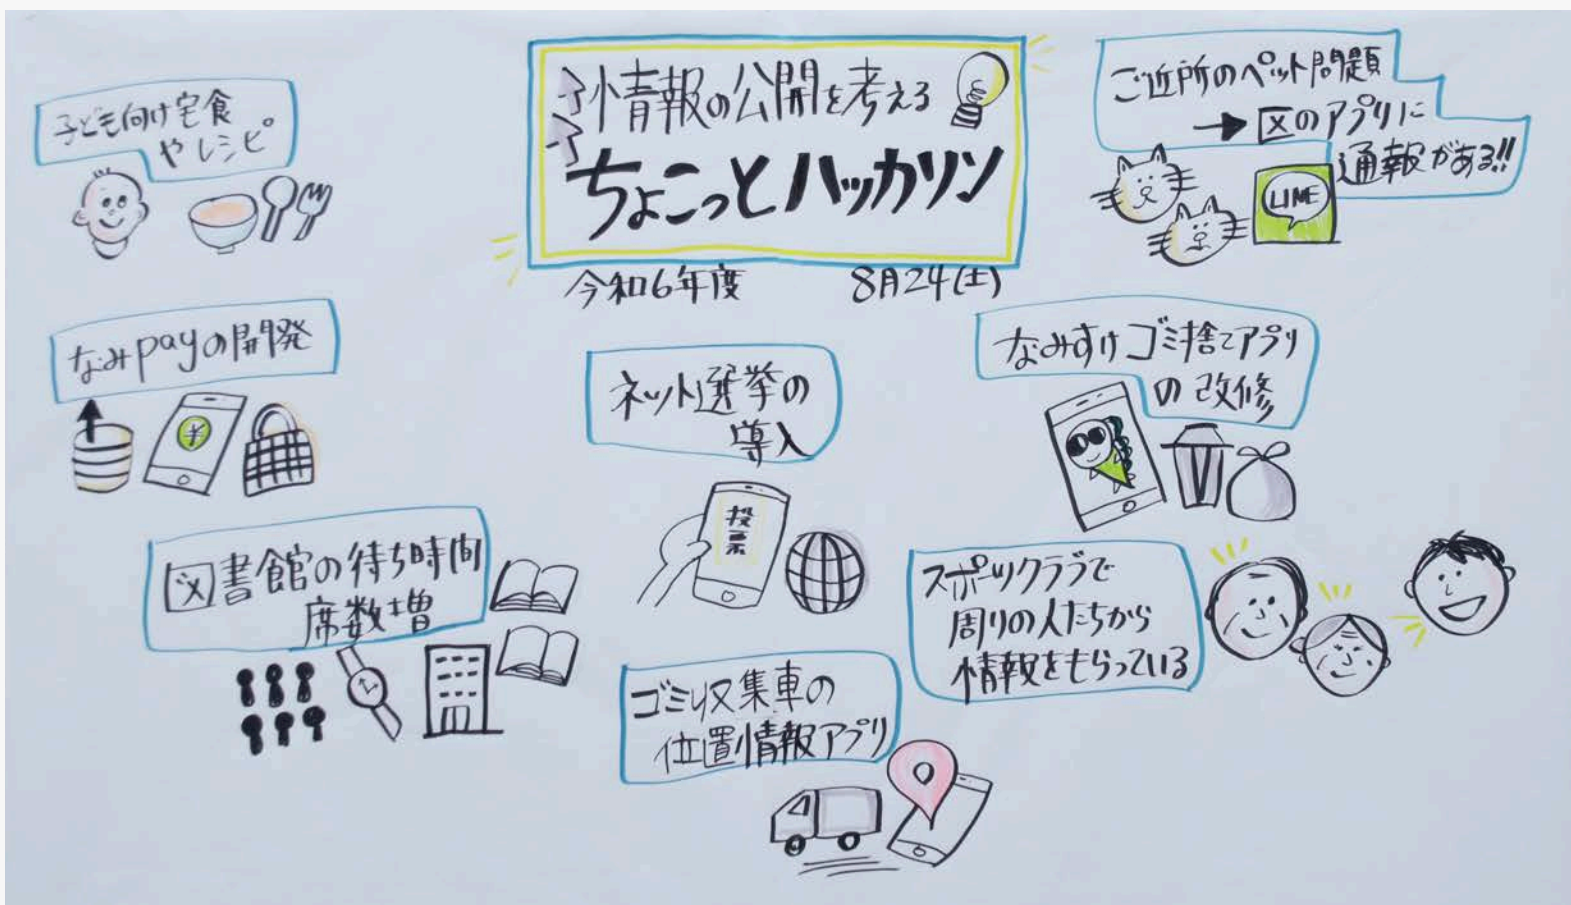 情報の公開を考える
ちょこっとハッカソン
令和6年度 8月24(土)
子ども向け宅食
やレシピ
ご近所のペット問題
→区のアプリに
通報がある!!
LINE
なみpayの開発
¥
ネット選挙の
導入
投票
なみすけゴミ捨てアプリ
の改修
図書館の待ち時間
席数増
スポーツクラブで
周りの人たちから
情報をもらっている
ゴミ収集車の
位置情報アプリ